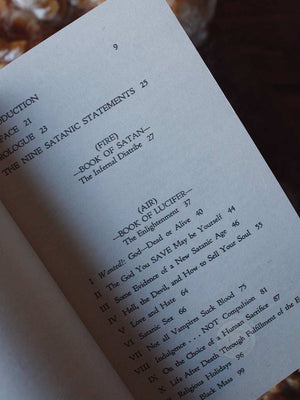 9
DUCTION
FACE 21
ROLOGUE 23
THE NINE SATANIC STATEMENTS 25
(FIRE)
—BOOK OF SATAN—
The Infernal Diatribe 27
(AIR)
—BOOK OF LUCIFER—
The Enlightenment 37
I Wanted!: God—Dead or Alive 40
II The God You SAVE May be Yourself 44
III Some Evidence of a New Satanic Age 46
IV Hell, the Devil, and How to Sell Your Soul 55
V Love and Hate 64
VI Satanic Sex 66
VII Not all Vampires Suck Blood 75
VIII Indulgence . . . NOT Compulsion 81
IX On the Choice of a Human Sacrifice 87
X Life After Death Through Fulfillment of the E
Religious Holidays 96
Black Mass